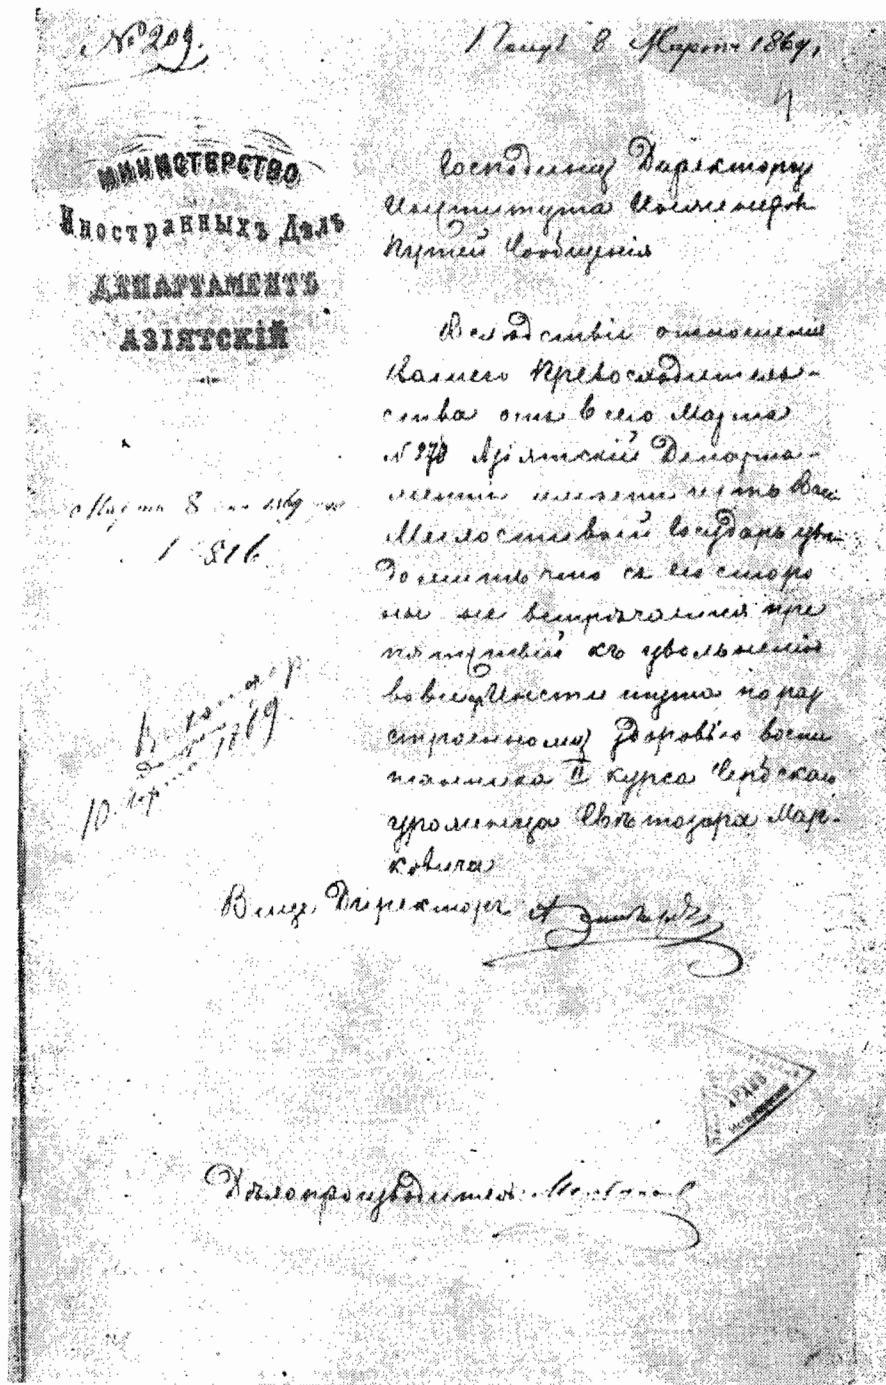 № 209.
Получ 8 Марта 1869.
МИНИСТЕРСТВО
Иностранныхъ Дѣлъ
ДЕПАРТАМЕНТЪ
АЗІЯТСКІЙ
Господину Директору
Института Инженеровъ
Путей Сообщенія
Вслѣдствіе отношенія
Вашего Превосходитель-
ства отъ 6 сего Марта
№ 278 Азіятскій Департа-
ментъ имѣетъ честь Васъ
Милостивый Государь увѣ-
домить что съ его сторо
ны не встрѣчается пре
пятствій къ увольненію
Института по раз
строенному здоровью воспи
танника II курса Сербскаго
уроженца Свѣтозара Мар-
ковича
Марта 8 дня 1869
816
10 Марта 1869.
Вице Директоръ А
Дѣлопроизводитель
АРХИВ